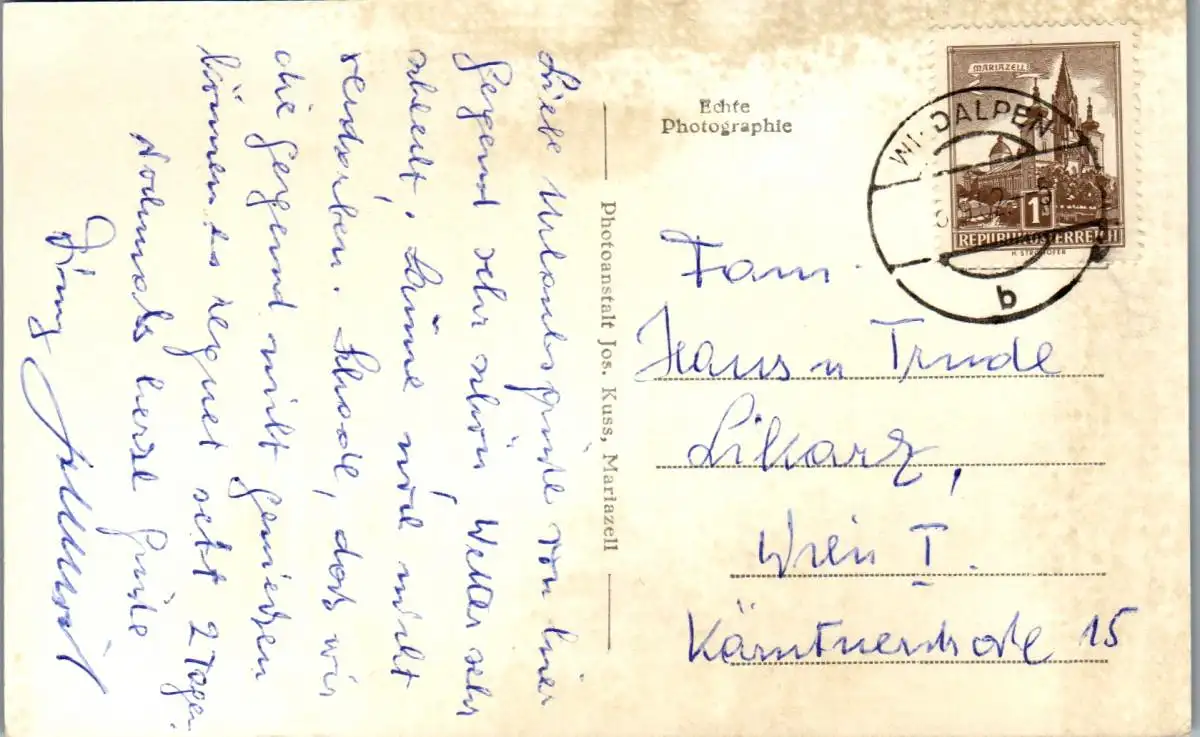 Liebe Urlaubsgrüße von hier
Gegend sehr schön Wetter sehr
schlecht, Laune noch nicht
verdorben. Schade, daß wir
die Gegend nicht genießen
können es regnet seit 2 Tagen
Nochmals herzl Grüße
Echte
Photographie
Photoanstalt Jos. Kuss, Mariazell
MARIAZELL
1S
REPUBLIK ÖSTERREICH
WILDALPEN
b
Fam.
Hans u Trude
Likarz,
Wien I.
Kärntnerstraße 15